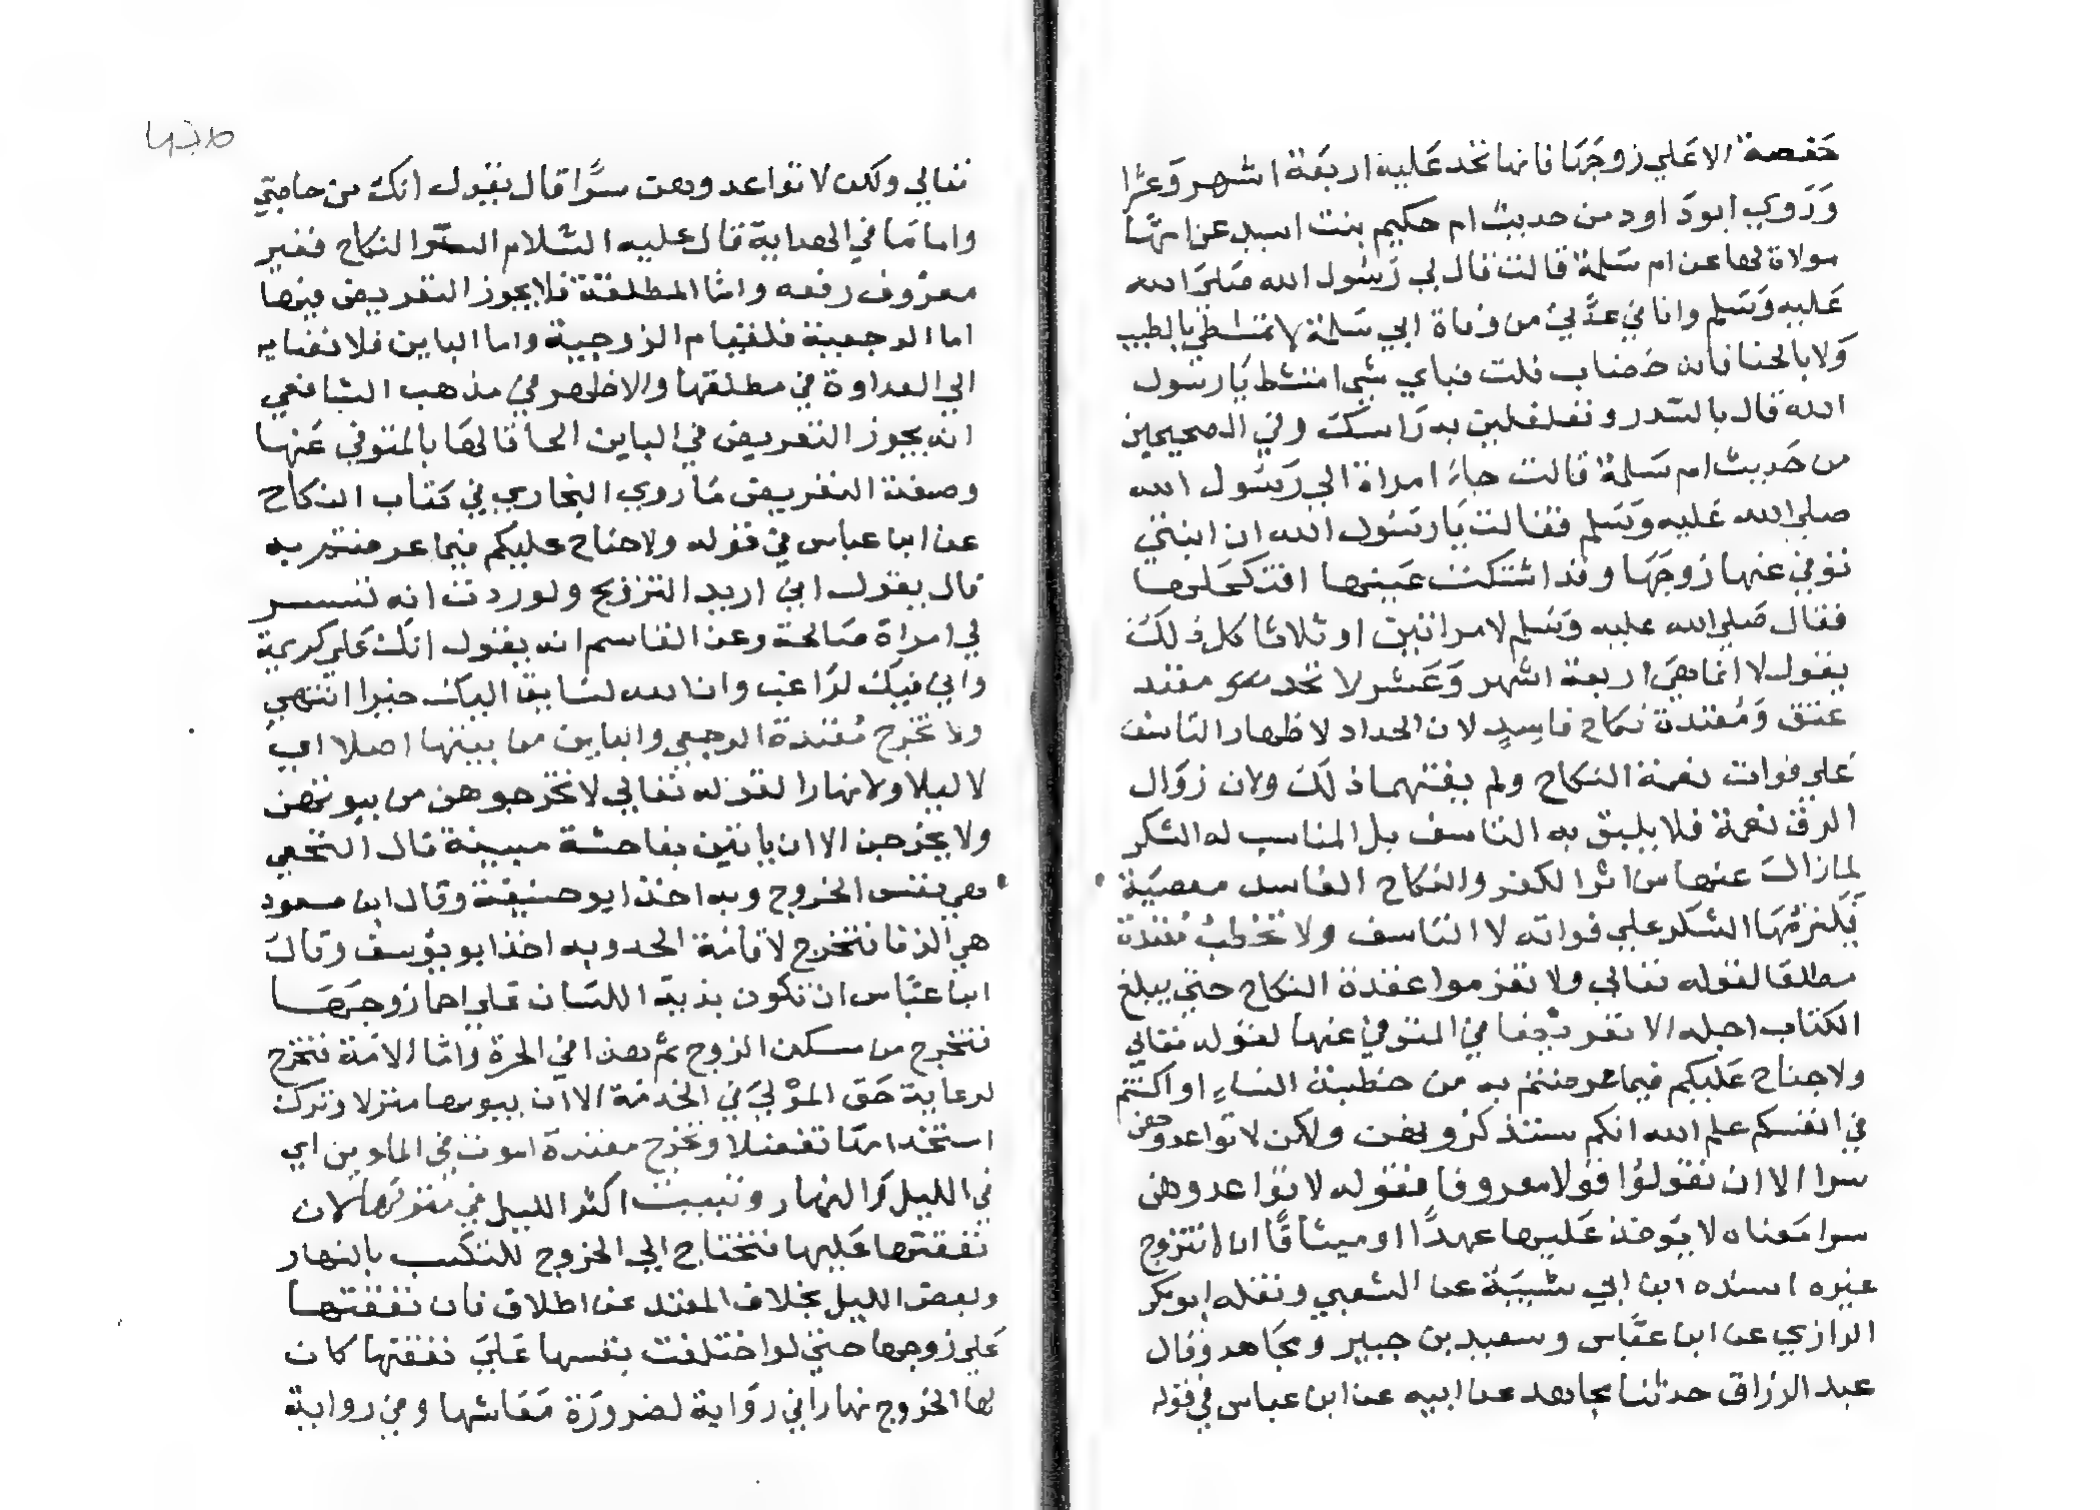 حَفصة الا عَلي زوجَهَا فانها تحد عَليه اربعَة اشهر وَعشرا
وَرَوي ابودَاود من حديث ام حكيم بنت اسيد عن امهَا
مولاة لها عن ام سَلمة قالت قال لي رَسُول الله صَلي الله
عَليه وَسَلم وانا في عدَّتي من وفاة ابي سَلمة لا تمتشطي بالطيب
وَلا بالحنا فانه خضاب قلت فباي شي امتشط يَا رسُول
الله قال بالسّدر وتغلفلين به رَاسك وفي الصحيحين
من حَديث ام سَلمة قالت جاءَ امراة الي رَسُول الله
صلي الله عَليه وَسَلم فقالت يَا رسَول الله ان ابنتي
توفي عنها زوجَهَا وقد اشتكت عَينها افنكحلها
فقال صَلي الله عليه وَسَلم لا مراتين او ثلاثا كل ذلك
يقول لا انما هي اربعة اشهر وَعَشر لا تحد معتد
عتق وَمُعتدة نكاح فاسِدٍ لان الحداد لاظهار التاسف
عَلي فوات نعمة النكاح ولم يفتهما ذلك ولان زوَال
الرق نعمة فلا يليق به التاسف بل المناسب له الشكر
لما زال عنها من اثر الكفر والنكاح الفاسد معصيَة
فَيَلزمُهَا الشكر علي فواته لا التاسف ولا تخطبُ مُعتدة
مطلقا لقوله تعالي ولا تعزموا عقدة النكاح حتي يبلغ
الكتاب اجله الا تعريضا في المتوفي عنها لقوله تعالي
ولا جناح عَليكم فيما عرضتم به من خطبة النساءِ او اكننتم
في انفسكم علم الله انكم ستذكرُونهن ولكن لا تواعدوهن
سرا الا ان تقولُوا قولا معروفا فقوله لا تواعدوهن
سرا مَعناه لا يؤخذ عَليها عهدًا او ميثاقًا ان لا تتزوج
غيره اسنده ابن ابي شيبَة عن الشعبي ونقله ابو بكر
الرازي عن ابن عَبّاس وسعيد بن جبير ومجَاهد وقال
عبد الرزاق حدثنا مجاهد عن ابيه عن ابن عباس في قوله
تعالي ولكن لا تواعدوهن سرًّا قال يقول انك من حاجتي
واما مَا في الهداية قال عليه السّلام السّر النكاح فغير
معرُوف رفعه وامّا المطلقة فلا يجوز التعريض فيها
اما الرجعية فلقيام الزوجية واما الباين فلافضايه
الي العداوة في مطلقها والاظهر في مذهب الشافعي
انه يجوز التعريض في الباين الحاقا لهَا بالمتوفي عَنها
وصفة التعريض مَا روي البخاري في كتاب النكاح
عن ابن عباس في قوله ولا جناح عليكم فيما عرضتم به
قال يقول اني اريد التزويج ولوددت انه تيسر
لي امراة صَالحة وعن القاسم انه يقول انك عَلي كريمة
واني فيك لرَاغب وان الله لسَايق اليك خيرا انتهي
ولا تخرج مُعتدة الرجعي والباين من بيتها اصلا اي
لا ليلا ولا نهارا لقوله تعالي لا تخرجوهن من بيوتهن
ولا يخرجن الا ان ياتين بفاحشة مبينة قال النخعي
هي نفس الخروج وبه اخذ ابو حنيفة وقال ابن مسعود
هي الزنا فتخرج لاقامَة الحد وبه اخذ ابو يوسف وقال
ابن عبّاس ان تكون بذية اللسَان علي احما زوجهَا
فتخرج من مسكن الزوج ثم هذا في الحرة وامّا الامَة فتخرج
لرعاية حَق المَوْلي في الخدمَة الا ان يبوءها منزلا وترك
استخدامهَا تفضلا وتخرج معتدة الموت في الملوين اي
في الليل وَالنهار وتبيت اكثر الليل في منزلهَا لان
نفقتها عَليها فتحتاج الي الخروج للتكسب بالنهار
وبعض الليل بخلاف المعتدة عن طلاق فان نفقتها
عَلي زوجها حتي لو اختلعت بنفسها عَلي نفقتها كان
لها الخروج نهارا في روَاية لضرورَة مَعَاشها وفي رواية